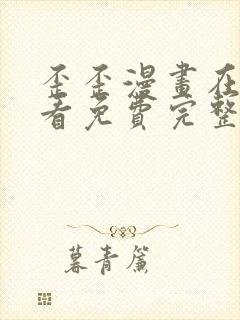 歪歪漫畫在
看免費完整
暮青簾